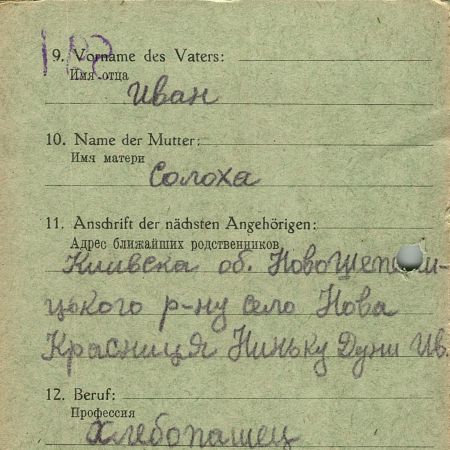 9. Vorname des Vaters:
Имя отца
Иван
10. Name der Mutter:
Имя матери
Солоха
11. Anschrift der nächsten Angehörigen:
Адрес ближайших родственников
Киивска об.
цького р-ну село Нова
Красниця Ниньку Дуни Ив.
12. Beruf:
Профессия
Хлебопашец